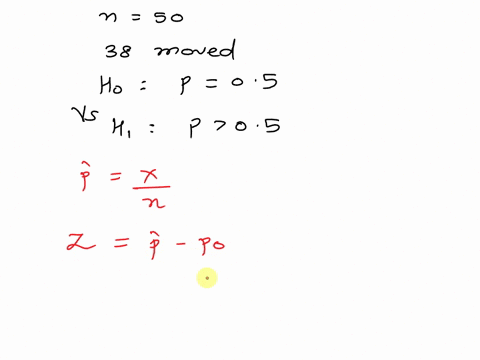 n = 50
38 moved
H0 : p = 0.5
Vs H1 : p > 0.5
p̂ = x/n
Z = p̂ - p0